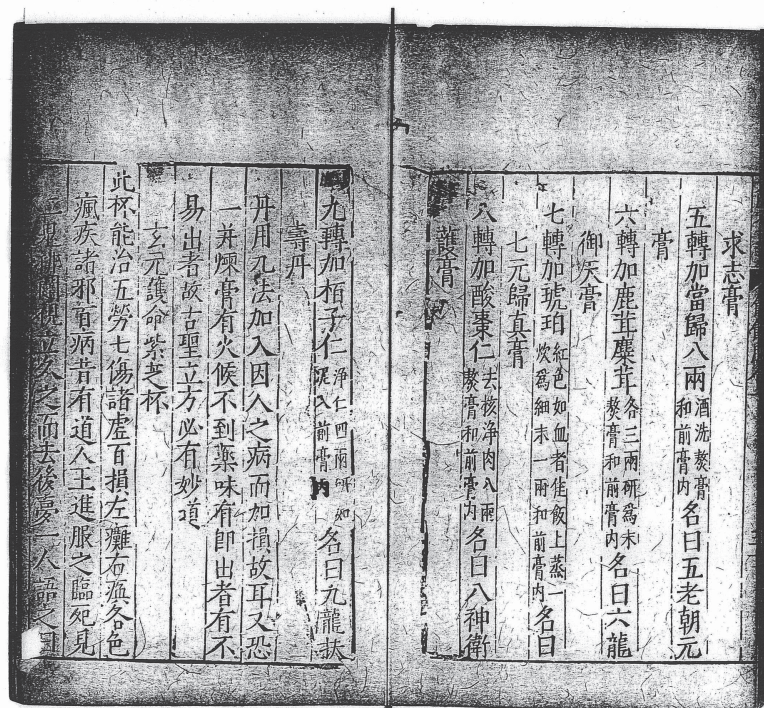 求志膏
五轉加當歸八兩酒洗熬膏和前膏内名曰五老朝元
膏
六轉加鹿茸麋茸各三兩研爲末熬膏和前膏内名曰六龍
御天膏
七轉加琥珀紅色如血者佳飯上蒸一炊爲細末一兩和前膏内名曰
七元歸真膏
八轉加酸棗仁去核淨肉八兩熬膏和前膏内名曰八神衛
護膏
九轉加栢子仁淨仁四兩研如泥入前膏内名曰九龍扶
壽丹
丹用九法加入因人之病而加損故耳又恐
一并煉膏有火候不到藥味有即出者有不
易出者故古聖立方必有妙道
玄元護命紫芝杯
此杯能治五勞七傷諸虛百損左癱右瘓各色
瘋疾諸邪百病昔有道人王進服之臨死見
二鬼排闥視立久之而去後夢一人語之曰